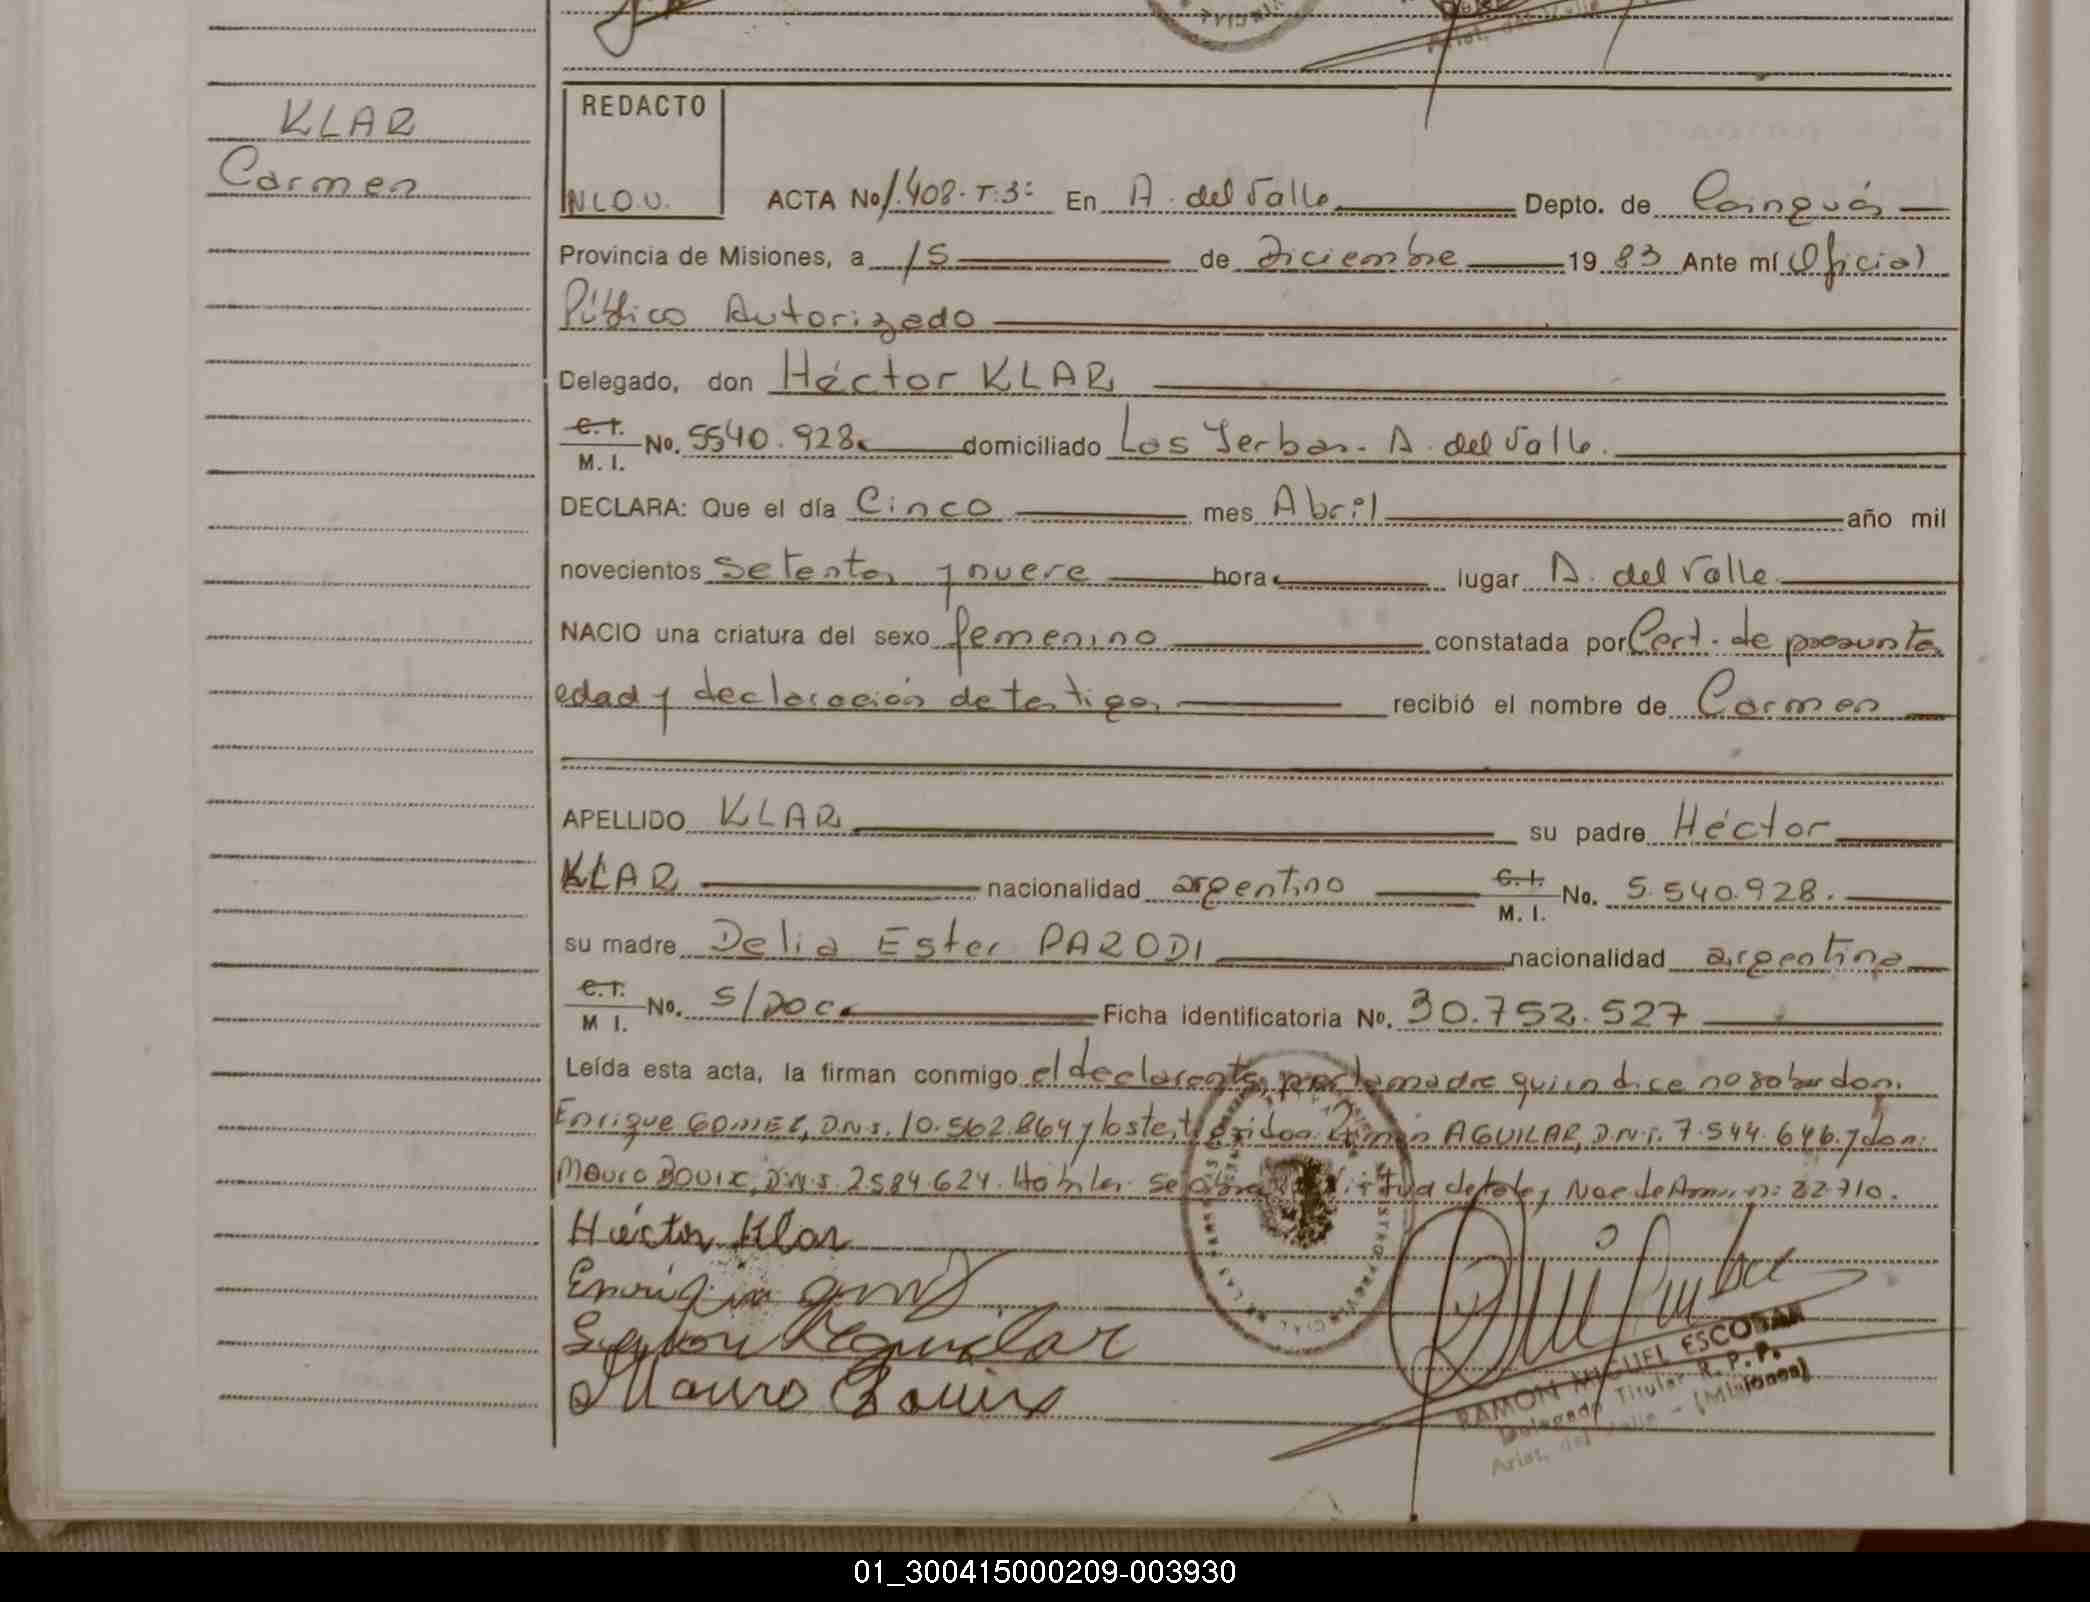 KLAR
Carmen
REDACTO
N.L.O.U.
ACTA No 1.408.T.3: En A. del Valle Depto. de Cainguás
Provincia de Misiones, a 15 de Diciembre 19 83 Ante mí Oficial
Público Autorizado
Delegado, don Héctor KLAR
C. I. M. I. No. 5540.928. domiciliado Las Yerbas. A. del Valle.
DECLARA: Que el día Cinco mes Abril año mil
novecientos setenta y nueve hora lugar A. del Valle
NACIO una criatura del sexo femenino constatada por Cert. de presunta
edad y declaración de testigos recibió el nombre de Carmen
APELLIDO KLAR su padre Héctor
KLAR nacionalidad argentino C. I. M. I. No. 5.540.928.
su madre Delia Ester PARODI nacionalidad argentina
C. I. M I. No. S/Doc. Ficha identificatoria No. 30.752.527
Leída esta acta, la firman conmigo el declarante, por la madre quien dice no saber don.
Enrique GOMEZ, D.N.I. 10.562.864 y los testigos don AGUILAR, D.N.I. 7.544.646. y don:
Mauro BOUIX, D.N.I. 2584.624. Hábiles. Se virtud de la ley Nac. de n: 22.710.
Héctor Klar
Enrique
Aguilar
Mauro Bouix
RAMON MIGUEL ESCOBAR
Delegado Titular R. P. P.
Arist. del Valle - (Misiones)
01_300415000209-003930